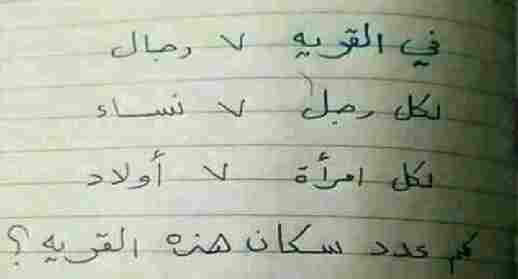 في القريه ٧ رجال
لكل رجل ٧ نساء
لكل امرأة ٧ أولاد
كم عدد سكان هذه القريه ؟